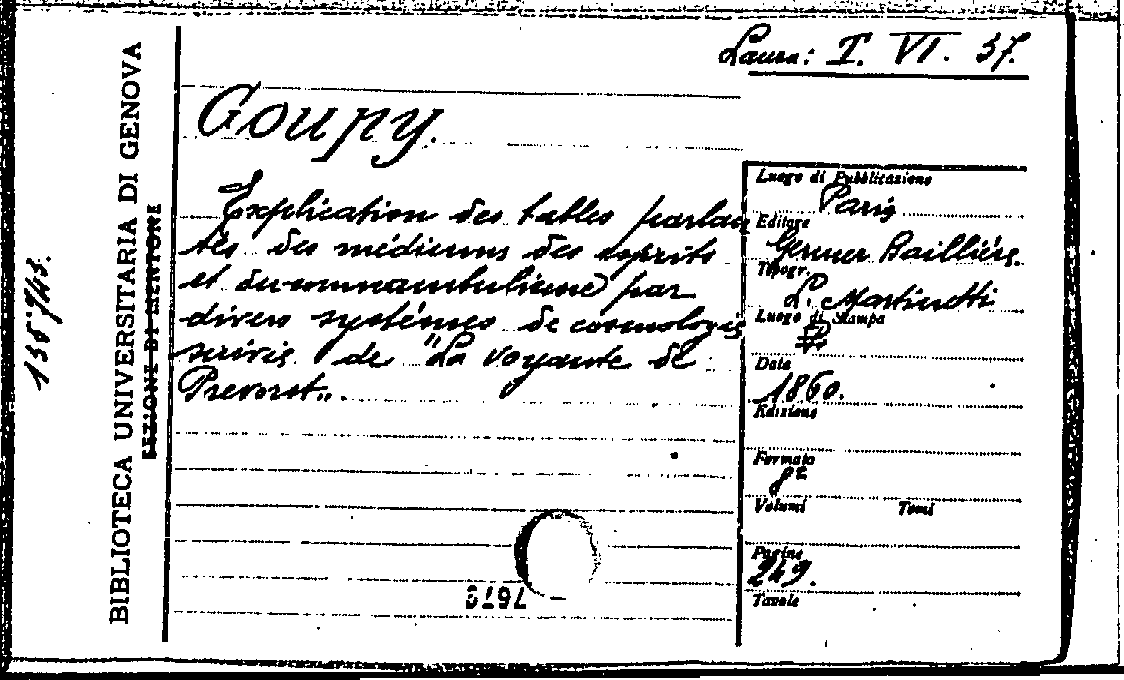 Laura: I. VI. 37.
Goupy.
Explication des tables parlan
tes des médiums des esprits
et du somnambulisme par
divers systémes de cosmologie
suivie de "La voyante de
Prevorst„.
Luogo di Pubblicazione
Paris
Editore
Germer Baillière.
Tipogr.
L. Martinetti
Luogo di Stampa
Data
1860.
Edizione
Formato
8º
Volumi Tomi
Pagine
249.
Tavole
BIBLIOTECA UNIVERSITARIA DI GENOVA
LEZIONI DI MENTONE